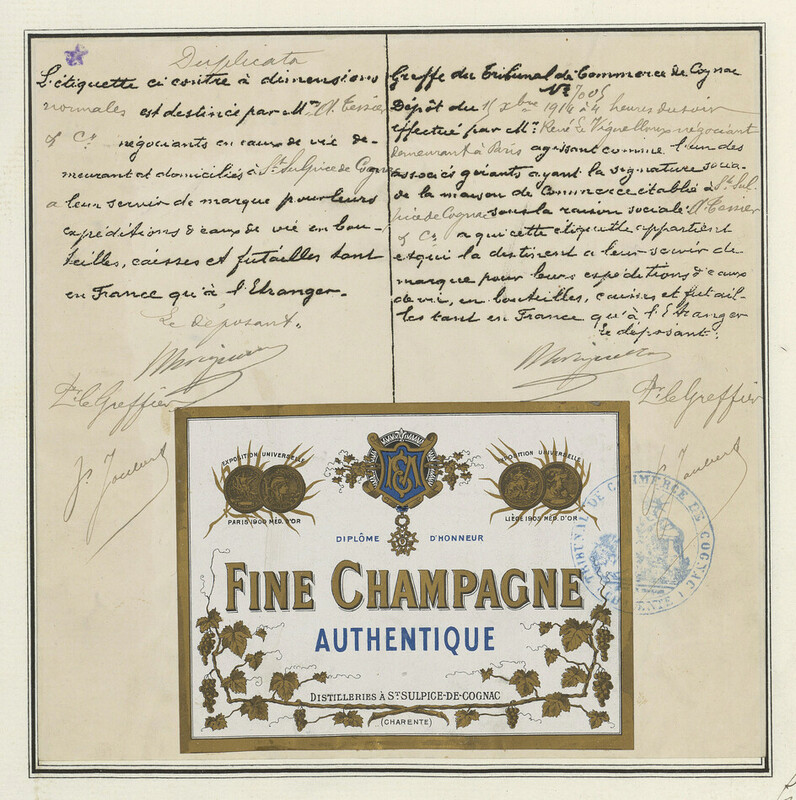 Duplicata
L'étiquette ci contre à dimensions
normales est destinée par Mrs A. Tessier
& Cie négociants en eaux de vie de-
meurant et domiciliés à St Sulpice de Cognac
a leur servir de marque pour leurs
expéditions d'eaux de vie en bou-
teilles, caisses et futailles tant
en France qu'à l'Etranger.
Le déposant,
Pr le Greffier
Greffe du Tribunal de Commerce de Cognac
No 7005
Dépôt du 15 Xbre 1914 à 4 heures du soir
effectué par Mr. René Le négociant
demeurant à Paris agissant comme l'un des
associés gérants ayant la signature socia-
de la maison de Commerce établie à St Sul-
pice de Cognac sous la raison sociale A. Tessier
& Cie a qui cette étiquette appartient
et qui la destinent a leur servir de
marque pour leurs expéditions d'eaux
de vie, en bouteilles, caisses et futail-
les tant en France qu'à l'Etranger
le déposant:
Pr le Greffier
EXPOSITION UNIVERSELLE
PARIS 1900 MÉD. D'OR
EXPOSITION UNIVERSELLE
LIÈGE 1905 MÉD. D'OR
DIPLÔME D'HONNEUR
FINE CHAMPAGNE
AUTHENTIQUE
DISTILLERIES À ST SULPICE-DE-COGNAC
(CHARENTE)
TRIBUNAL DE COMMERCE DE COGNAC